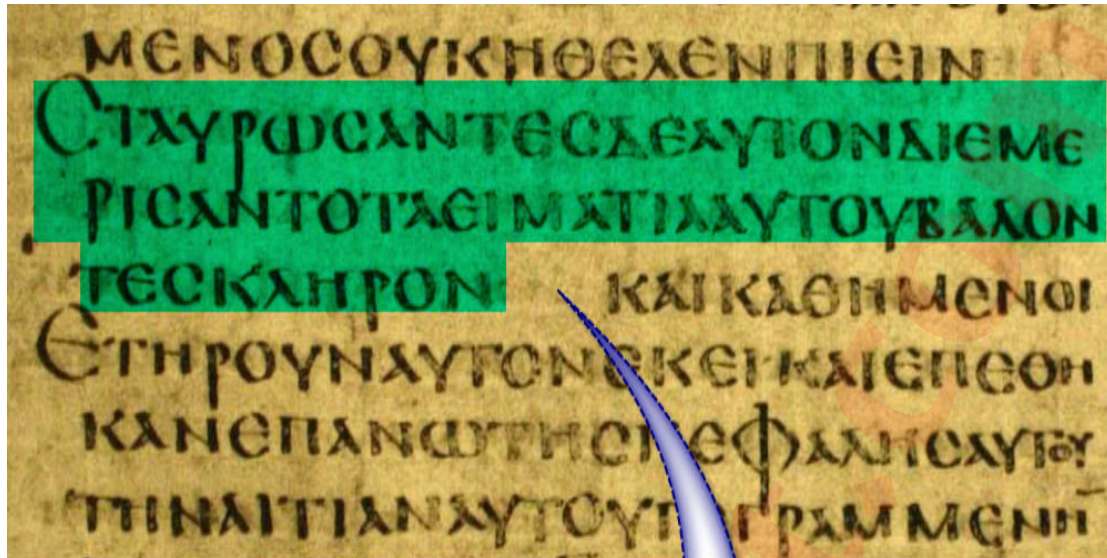 ΜΕΝΟϹΟΥΚΗΘΕΛΕΝΠΙΕΙΝ
ϹΤΑΥΡΩϹΑΝΤΕϹΔΕΑΥΤΟΝΔΙΕΜΕ
ΡΙϹΑΝΤΟΤΑΕΙΜΑΤΙΑΑΥΤΟΥΒΑΛΟΝ
ΤΕϹΚΛΗΡΟΝ ΚΑΙΚΑΘΗΜΕΝΟΙ
ΕΤΗΡΟΥΝΑΥΤΟΝΕΚΕΙ·ΚΑΙΕΠΕΘΗ
ΚΑΝΕΠΑΝΩΤΗϹΚΕΦΑΛΗϹΑΥΤΟΥ
ΤΗΝΑΙΤΙΑΝΑΥΤΟΥΓΕΓΡΑΜΜΕΝΗ